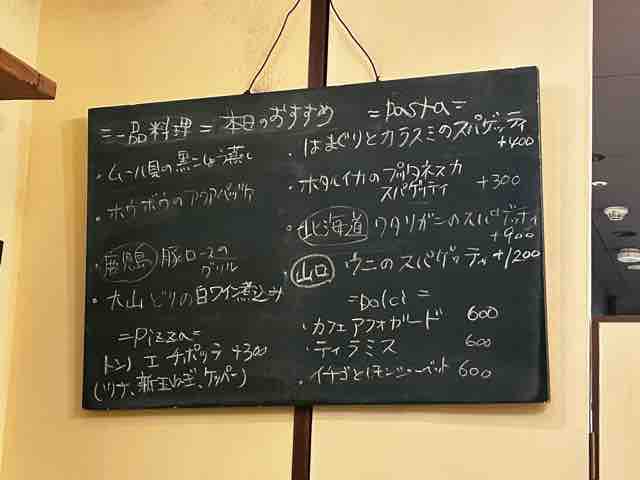 =一品料理= 本日のおすすめ
・ムール貝の黒こしょう蒸し
・ホウボウのアクアパッツァ
・鹿児島 豚ロースの
グリル
・大山どりの白ワイン煮込み
=Pizza=
トンノ エ チポッラ +300
(ツナ、新玉ねぎ、ケッパー)
=pasta=
・はまぐりとカラスミのスパゲッティ
+400
・ホタルイカのプッタネスカ
スパゲッティ +300
・北海道 ワタリガニのスパゲッティ
+900
・山口 ウニのスパゲッティ +1200
=Dolci=
・カフェアフォガード 600
・ティラミス 600
・イチゴとレモンシャーベット 600